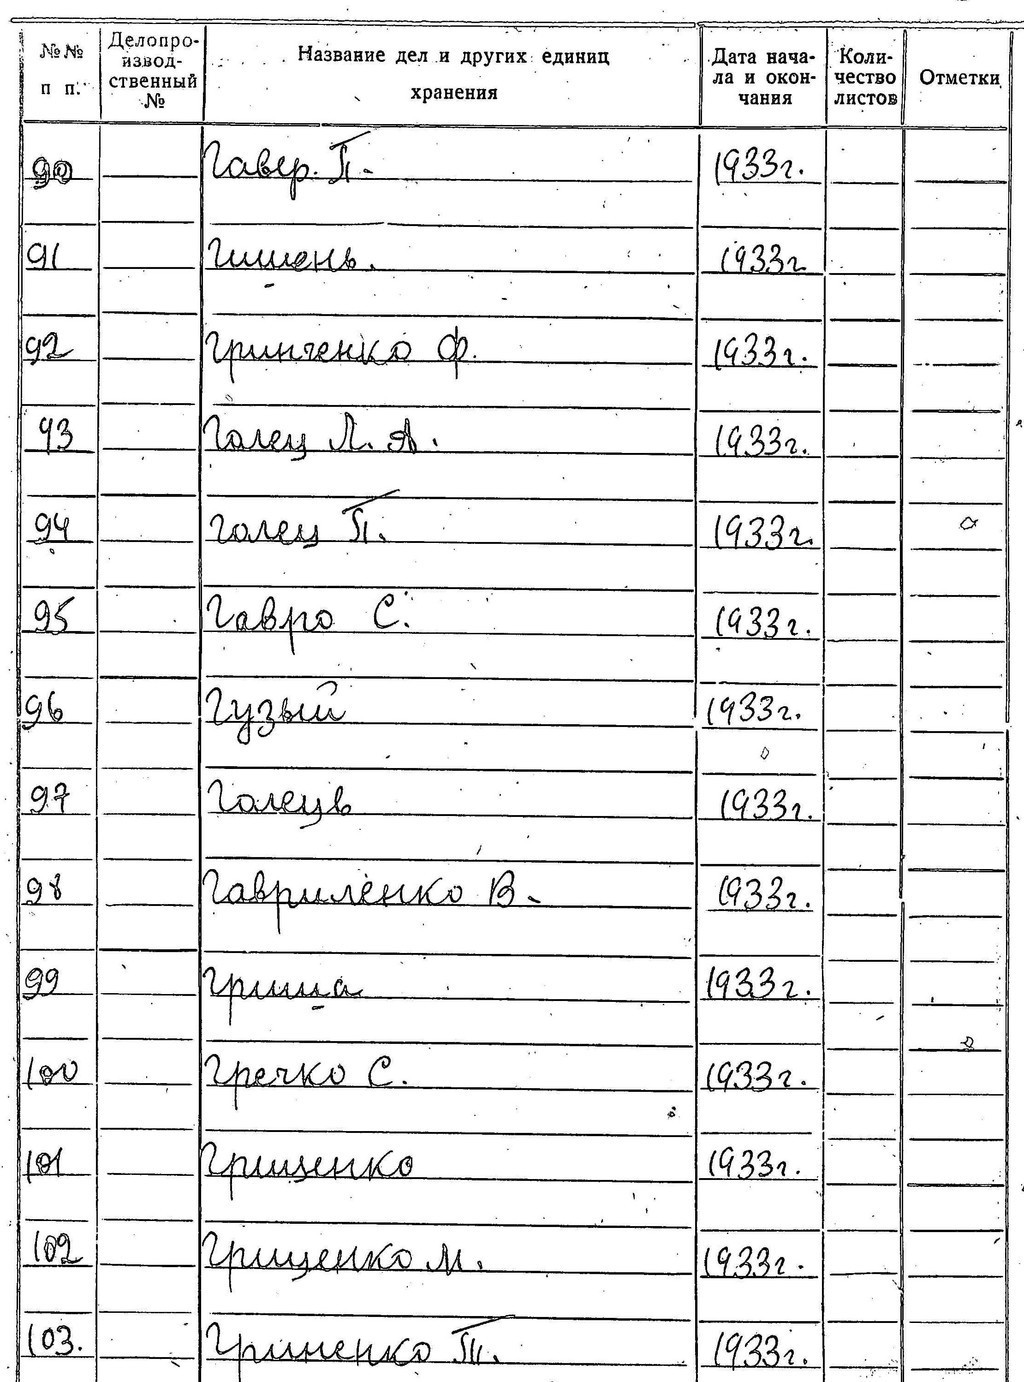 №№ п п. Делопроизвод-ственный № Название дел и других единиц хранения Дата нача-ла и окон-чания Коли-чество листов Отметки
90 Гавер. П. 1933г.
91 Гишень. 1933г
92 Гринченко Ф. 1933г.
93 Голец Л. А. 1933г.
94 Голец П. 1933г.
95 Гавро С. 1933г.
96 Гузый 1933г.
97 Голецв 1933г.
98 Гавриленко В. 1933г.
99 Гриша 1933г.
100 Гречко С. 1933г.
101 Грищенко 1933г.
102 Грищенко М. 1933г.
103. Гриненко 1933г.